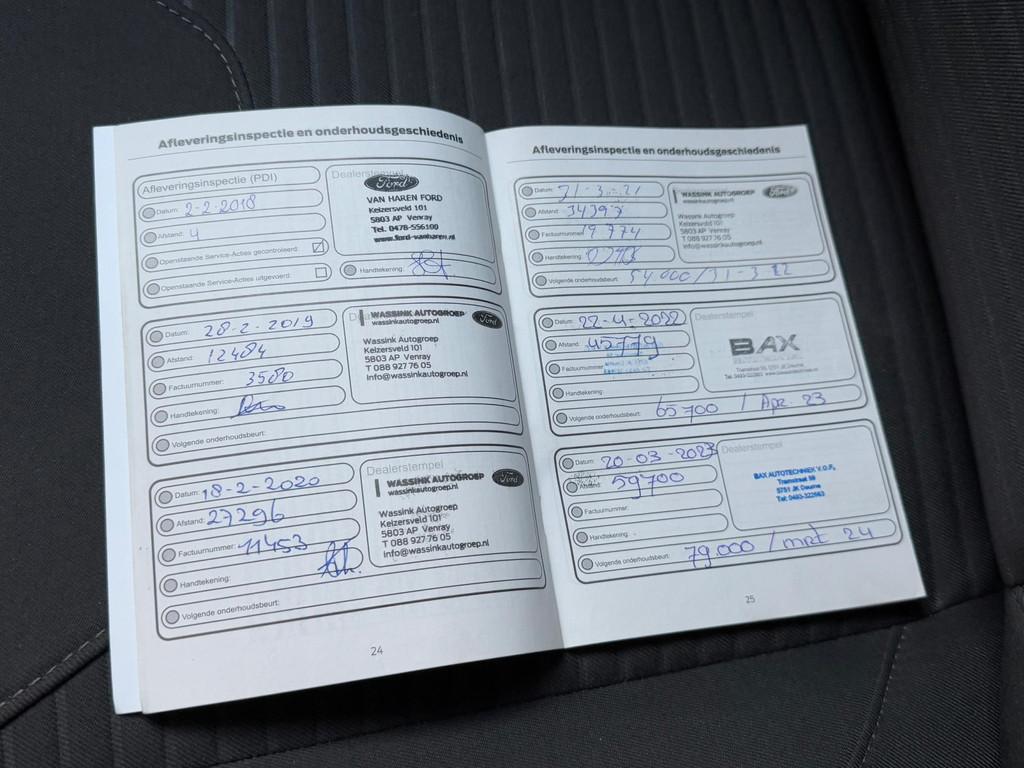 Afleveringsinspectie en onderhoudsgeschiedenis
Afleveringsinspectie (PDI)
Datum: 2-2-2018
Afstand: 4
Openstaande Service-Acties gecontroleerd:
Openstaande Service-Acties uitgevoerd:
Dealerstempel
Ford
VAN HAREN FORD
Keizersveld 101
5803 AP Venray
Tel. 0478-556100
www.ford-vanharen.nl
Handtekening:
Datum: 28-2-2019
Afstand: 12484
Factuurnummer: 3580
Handtekening:
Volgende onderhoudsbeurt:
WASSINK AUTOGROEP
wassinkautogroep.nl
Ford
Wassink Autogroep
Keizersveld 101
5803 AP Venray
T 088 927 76 05
info@wassinkautogroep.nl
Datum: 18-2-2020
Afstand: 27296
Factuurnummer: 11453
Handtekening:
Volgende onderhoudsbeurt:
Dealerstempel
WASSINK AUTOGROEP
wassinkautogroep.nl
Ford
Wassink Autogroep
Keizersveld 101
5803 AP Venray
T 088 927 76 05
info@wassinkautogroep.nl
24
Afleveringsinspectie en onderhoudsgeschiedenis
Datum: 31-3-21
Afstand: 34397
Factuurnummer: 19774
Handtekening:
Volgende onderhoudsbeurt: 54000/31-3-22
WASSINK AUTOGROEP
wassinkautogroep.nl
Ford
Wassink Autogroep
Keizersveld 101
5803 AP Venray
T 088 927 76 05
info@wassinkautogroep.nl
Datum: 22-4-2022
Afstand: 45779
Factuurnummer:
Handtekening:
Volgende onderhoudsbeurt: 65700 / Apr. 23
Dealerstempel
BAX
Datum: 20-03-2023
Afstand: 59700
Factuurnummer:
Handtekening:
Volgende onderhoudsbeurt: 79.000 / mrt 24
Dealerstempel
BAX AUTOTECHNIEK V.O.F.
Tramstraat 59
5751 JK Deurne
Tel: 0493-322663
25